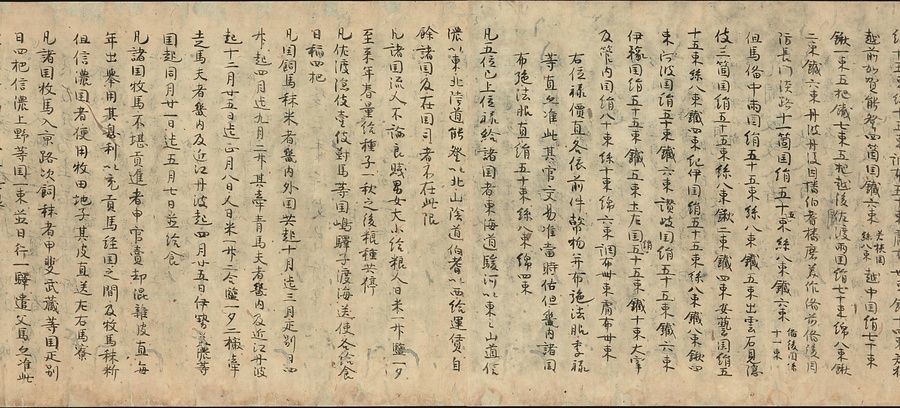 越前加賀能登四箇国鐵六束 越中国絹七十束
鍬三束五把鐵七束五把越後佐渡両国絹七十束綿八束鍬
二束鐵六束丹波丹後因幡伯耆播磨美作備前備後周
防長門淡路十一箇国絹五十束絲八束鐵六束
但馬備中両国絹五十五束絲八束鐵五束出雲石見隠
伎三箇国絹五十五束絲八束鍬二束鐵四束安藝国絹五
十五束絲八束鐵四束紀伊国絹五十五束絲八束鍬四
束阿波国絹五十束鐵六束讃岐国絹五十五束鐵六束
伊豫国絹五十五束鐵五束土左国絹五十五束鐵十束大宰
及管内国絹八十束絲十束綿六束調布卌束庸布卌束
右位禄價直各依前件幣物并布施法服季禄
等直亦准此其官交易准當時估但畿内諸国
布施法服直絹五十束絲八束綿四束
凡五位已上位禄給諸国者東海道駿河以東東山道信
濃以東北陸道能登以北山陰道伯耆以西給運賃自
餘諸国及在国司者不在此限
凡諸国流人不論良賤男女大小給粮人日米一升塩一夕
至来年春量給種子一秋之後粮種共停
凡佐渡隠伎壹伎對馬等国嶋驛子渡海送使各給食
日稲四把
凡国飼馬秣米者畿内外国共起十月迄三月疋別日四
升起四月迄九月二升其牽青馬夫者畿内及近江丹波
起十二月廿五日迄正月八日人日米一升二合塩一夕二撮牽
走馬夫者畿内及近江丹波起四月廿五日伊勢美濃等
国起同月廿一日迄五月七日並給食
凡諸国牧馬不堪貢進者申官賣却混雜皮直毎
年出擧用其息利以充貢馬経国之間及牧馬秣新
但信濃国者便用牧田地子其皮直送左右馬寮
凡諸国牧馬入京路次飼秣者甲斐武蔵等国疋別
日四把信濃上野等国一束並日行一驛遣父馬亦准此